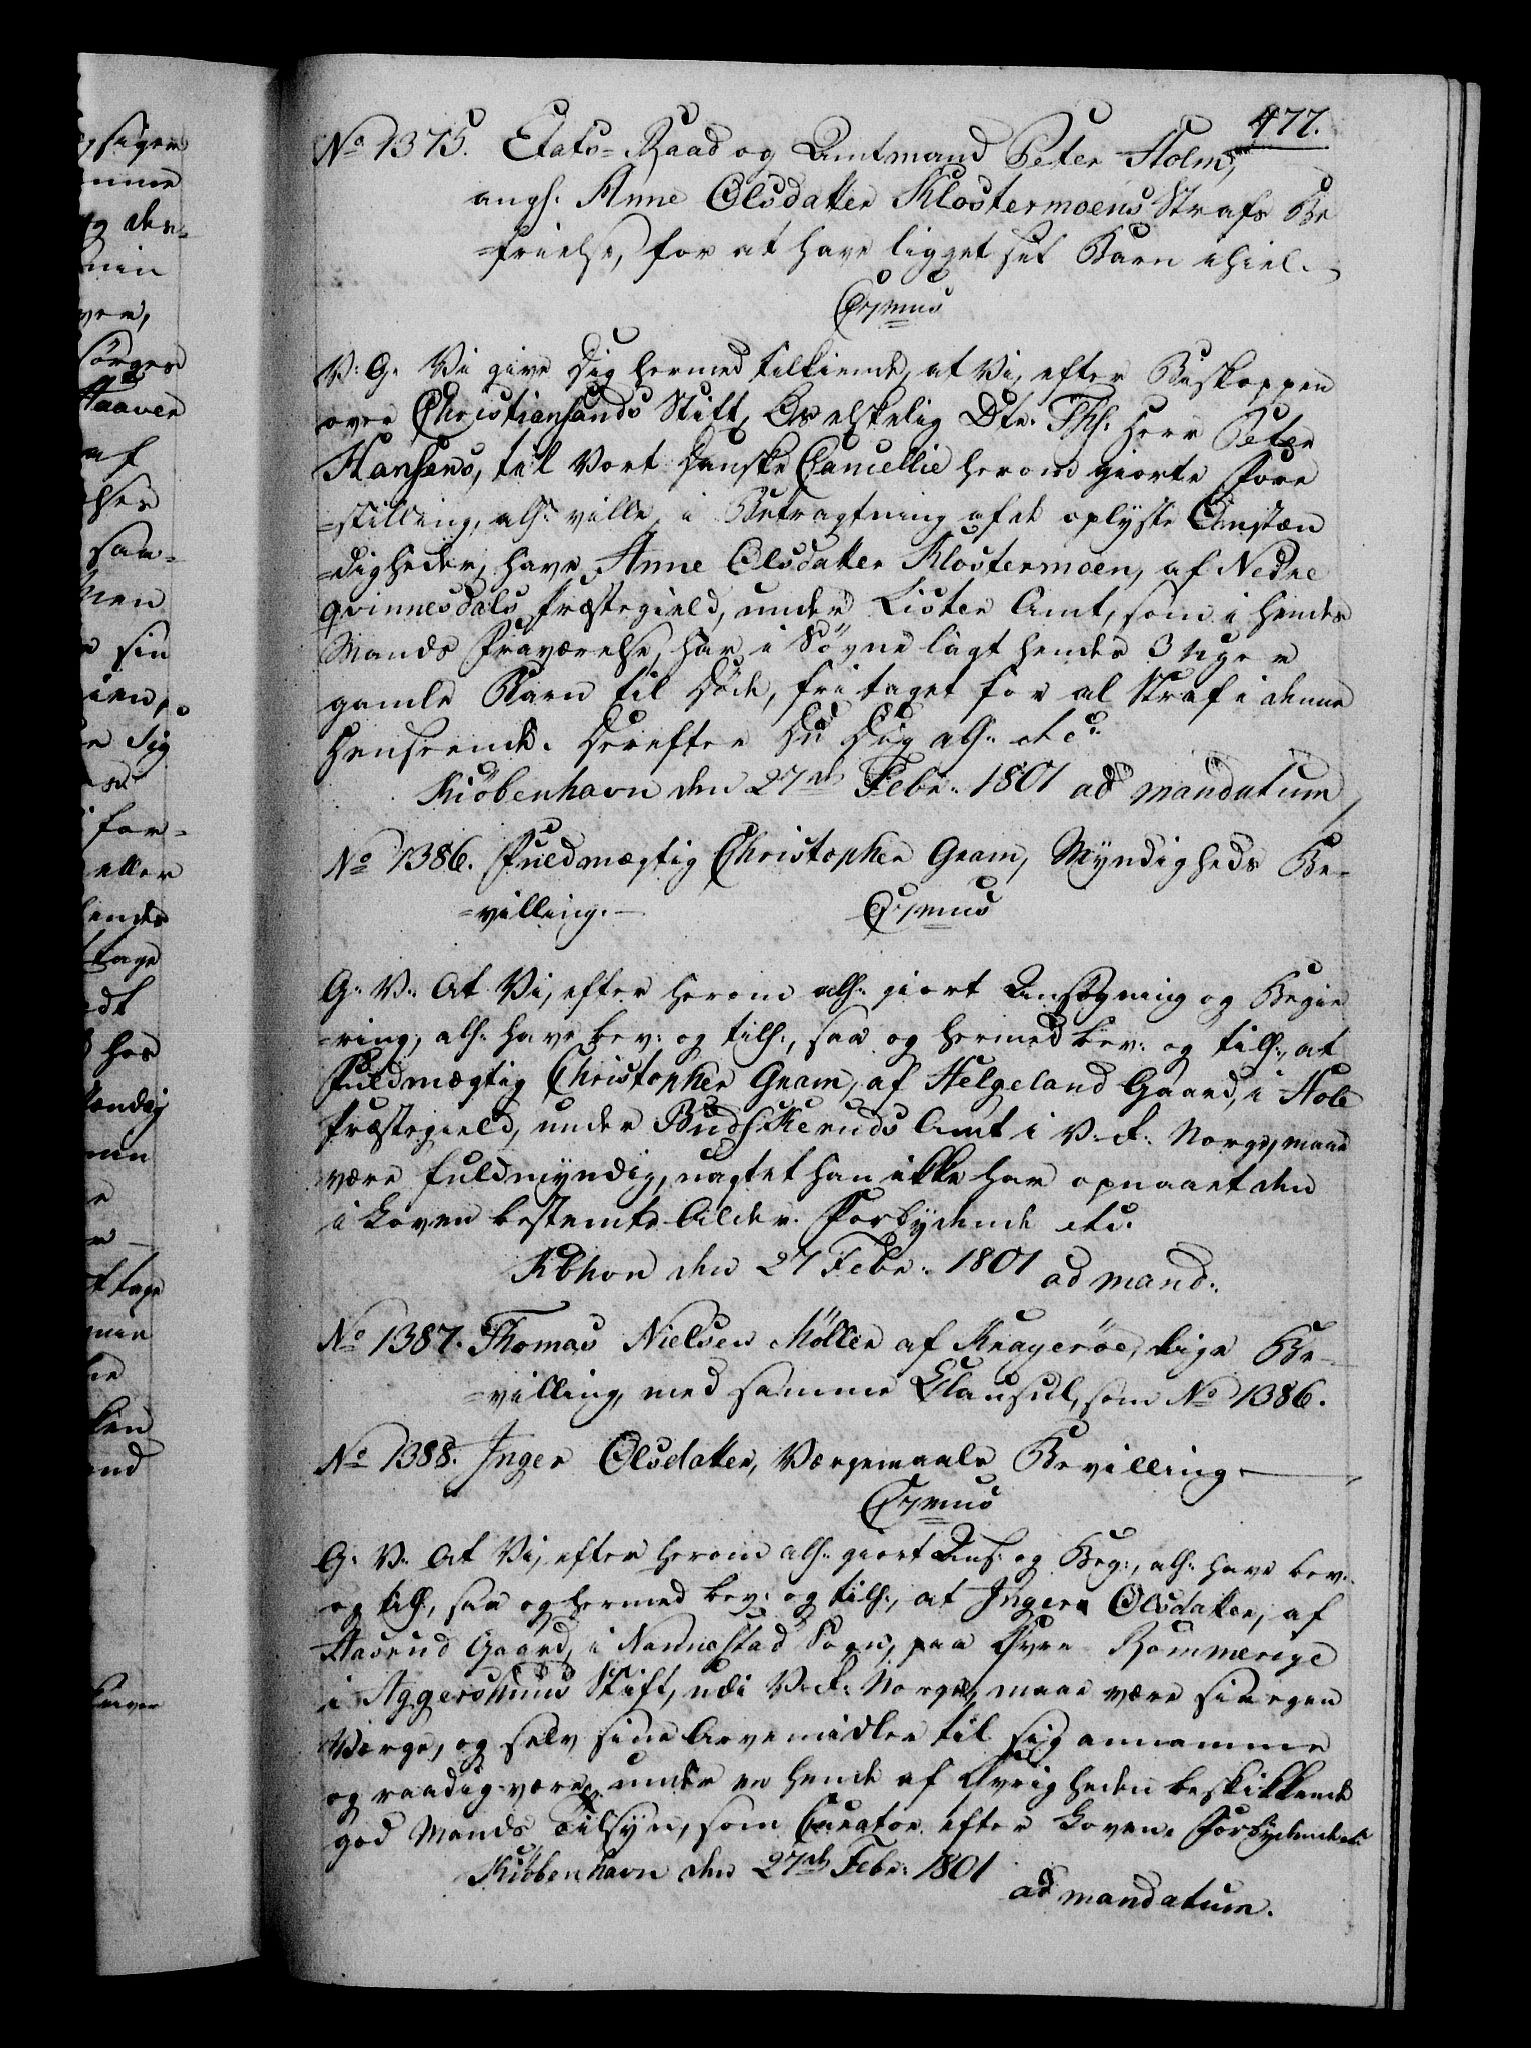 477.
No 1375. Etats-Raad og Amtmand Peter Holm,
angs. Anne Olsdatter Klostermoens Strafs Be
=frielse, for at have ligget sit Barn ihiel.
C7mus
V: G. Vi give Dig hermed tilkiende, at Vi, efter Biskoppen
over Christiansands Stift, Os elskelig Dtr. Ths. Herr Peter
Hansens, til Vort Danske Cancellie herom giorte Fore
=stilling, alls. ville, i Betragtning af de oplyste Omstæn
=digheder, have Anne Olsdatter Klostermoen, af Nedre
Qvinnesdals Præstegield, under Lister Amt, som i hendes
Mands Fraværelse, har i Søvne lagt hendes 3 Uger
gamle Barn til Døde, fritaget for al Straf i denne
Henseende. Derefter Du Dig alls. etc.
Kiöbenhavn den 27de Febr. 1801 ad mandatum
No 1386. Fuldmægtig Christopher Gram, Myndigheds Be-
=villing.
C7mus
G: V: At Vi, efter herom alls. giort Ansøgning og Begie
=ring, alls. have bev: og tills:, saa og hermed bev: og tills:, at
Fuldmægtig Christopher Gram, af Helgeland Gaard, i Hole
Præstegield, under Budskeruds Amt i V. R. Norge, maae
være fuldmyndig, uagtet han ikke har opnaaet den
i Loven bestemte Alder. Forbydende etc.
Kbhvn den 27 Febr. 1801 ad mand:
No 1387. Thomas Nielsen Möller af Kragerøe, lige Be-
=villing, med samme Clausul, som No 1386.
No 1388. Inger Olsdatter, Værgemaals Bevilling
C7mus
G: V: At Vi, efter herom alls. giort Ans: og Beg:, alls. have bev:
og tills:, saa og hermed bev: og tills:, at Inger Olsdatter, af
Aaserud Gaard, i Nannestad Sogn, paa Øvre Rommerige
i Aggershuus Stift, udi V. R. Norge, maae være sin egen
Værge, og selv sine Arvemidler til sig annamme
og raadig være under en hende af Øvrigheden beskikkende
god Mands Tilsyn, som Curator efter Loven. Forbydende etc.
Kiöbenhavn den 27de Febr: 1801
ad mandatum.